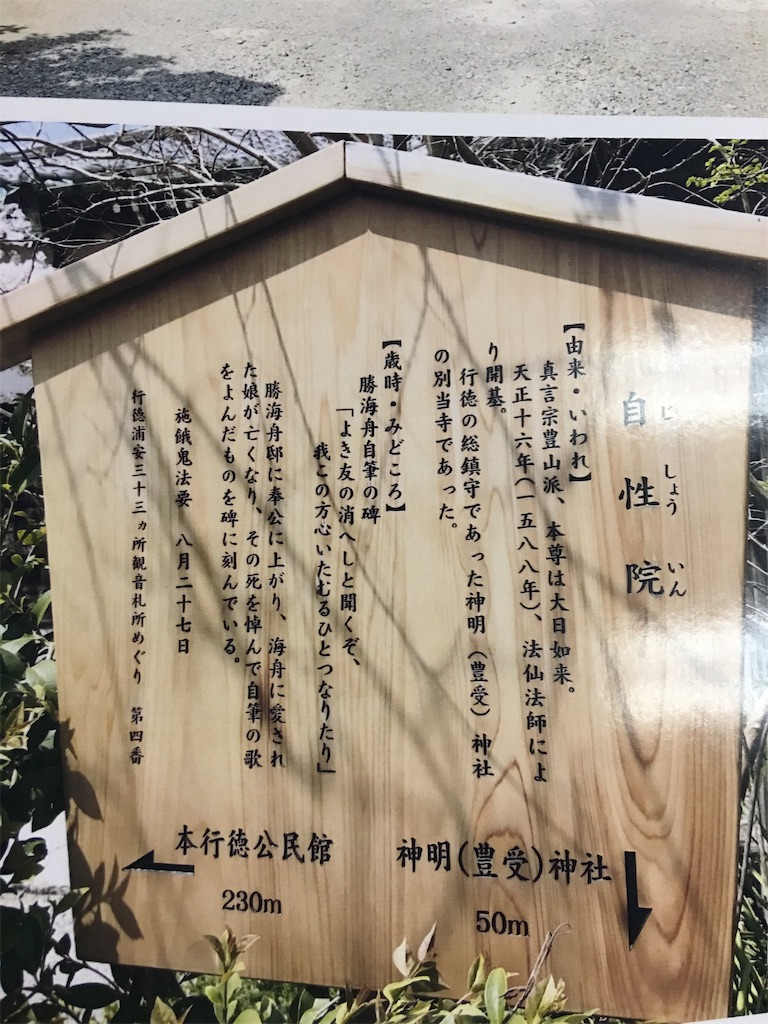 自性院
じしょういん
【由来・いわれ】
真言宗豊山派、本尊は大日如来。
天正十六年(一五八八年)、法仙法師によ
り開基。
行徳の総鎮守であった神明（豊受）神社
の別当寺であった。
【歳時・みどころ】
勝海舟自筆の碑
「よき友の消へしと聞くぞ、
我この方心いたむるひとつなりたり」
勝海舟邸に奉公に上がり、海舟に愛され
た娘が亡くなり、その死を悼んで自筆の歌
をよんだものを碑に刻んでいる。
施餓鬼法要　八月二十七日
行徳浦安三十三ヵ所観音札所めぐり　第四番
神明(豊受)神社
50m
本行徳公民館
230m